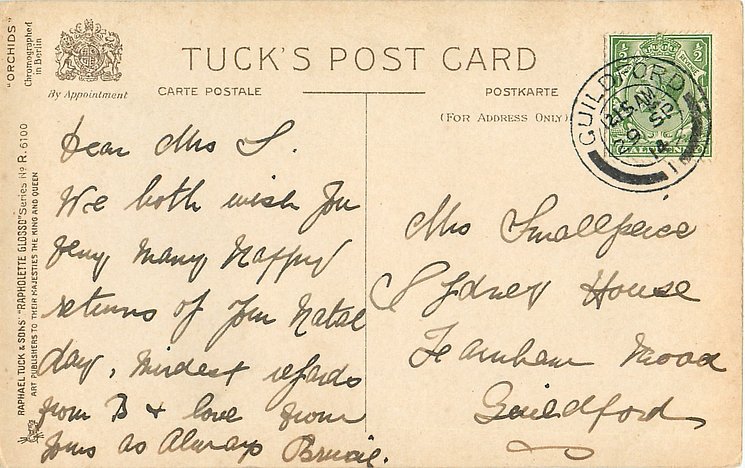 "ORCHIDS"
Chromographed
in Berlin
By Appointment
TUCK'S POST CARD
CARTE POSTALE
POSTKARTE
(FOR ADDRESS ONLY)
RAPHAEL TUCK & SONS' "RAPHOLETTE GLOSSO" Series No R. 6100
ART PUBLISHERS TO THEIR MAJESTIES THE KING AND QUEEN
GUILDFORD
12.15 AM
9 SP
14
1
½
½
HALFPENNY
Dear Mrs S.
We both wish you
very many Happy
returns of your Natal
day, Kindest regards
from B & love from
yours as Always
Mrs Smallpeice
Sydney House
Farnham Road
Guildford